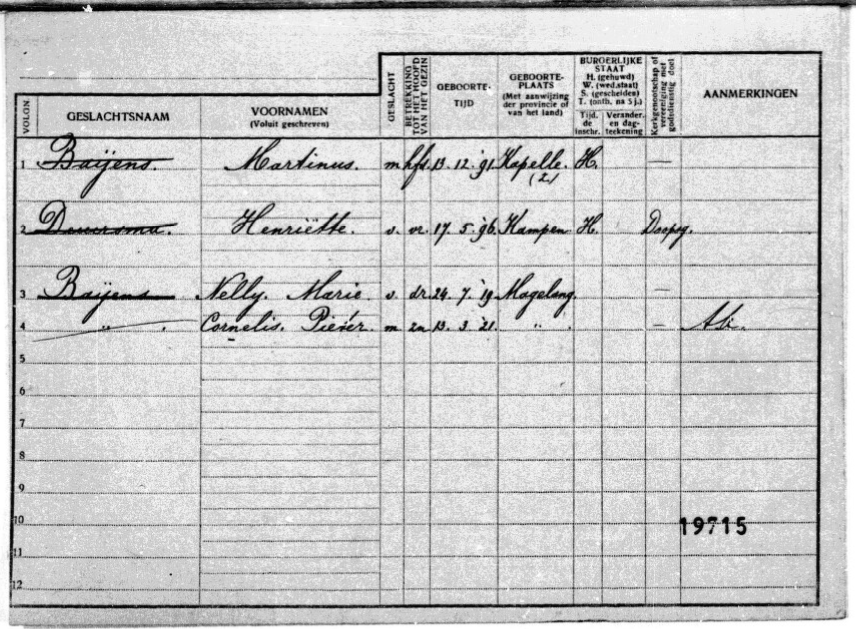 VOLGN.
GESLACHTSNAAM
VOORNAMEN
(Voluit geschreven)
GESLACHT
BETREKKING
TOT HET HOOFD
VAN HET GEZIN
GEBOORTE-
TIJD
GEBOORTE-
PLAATS
(Met aanwijzing
der provincie of
van het land)
BURGERLIJKE
STAAT
H. (gehuwd)
W. (wed.staat)
S. (gescheiden)
T. (ontb. na 5 j.)
Tijd.
de
inschr.
Verander.
en dag-
teekening
Kerkgenootschap of
vereeniging met
godsdienstig doel
AANMERKINGEN
1 Baijens. Martinus. m hfd. 13. 12. '91. Kapelle. H. —
(Z.)
2 Douwsma. Henriëtte. v. vr. 17. 5. '96. Kampen H. Doopsg.
3 Baijens Nelly. Marie. v. dr. 24. 7. '19. Magelang. —
4 " . Cornelis. Pieter. m zn 13. 3. '21. " . —
5
6
7
8
9
10 19715
11
12